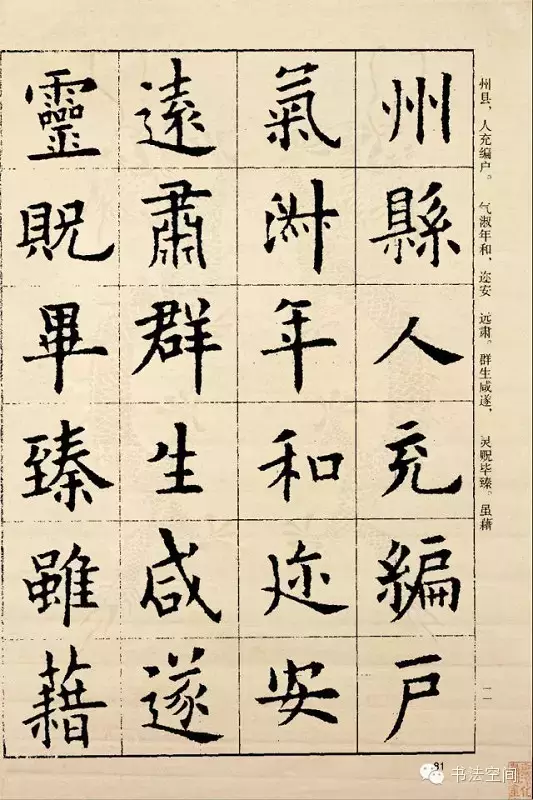 州縣人充編戶
氣淑年和迩安
遠肅群生咸遂
靈貺畢臻雖藉
州县，人充编户。 气淑年和，迩安 远肃。群生咸遂， 灵贶毕臻。虽藉
二一
81
书法空间